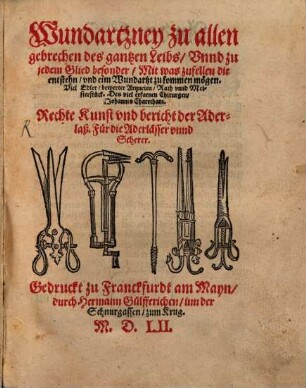 Wundartzney zu allen
gebrechen des gantzen Leibs/ Vnnd zu
jedem Glied besonder/ Mit was zufellen die
entstehn/ vnd eim Wundartzt zu kommen mögen.
Viel Edler/ bewerter Artzneien/ Rath vnnd Mei-
sterstück. Des viel erfarnen Chirurgen/
Johannis Charethani.
Rechte Kunst vnd bericht der Ader-
laß. Für die Aderlässer vnnd
Scherer.
Gedruckt zu Franckfurdt am Mayn/
durch Hermann Gülfferichen/ inn der
Schnurgassen/ zum Krug.
M. D. LII.